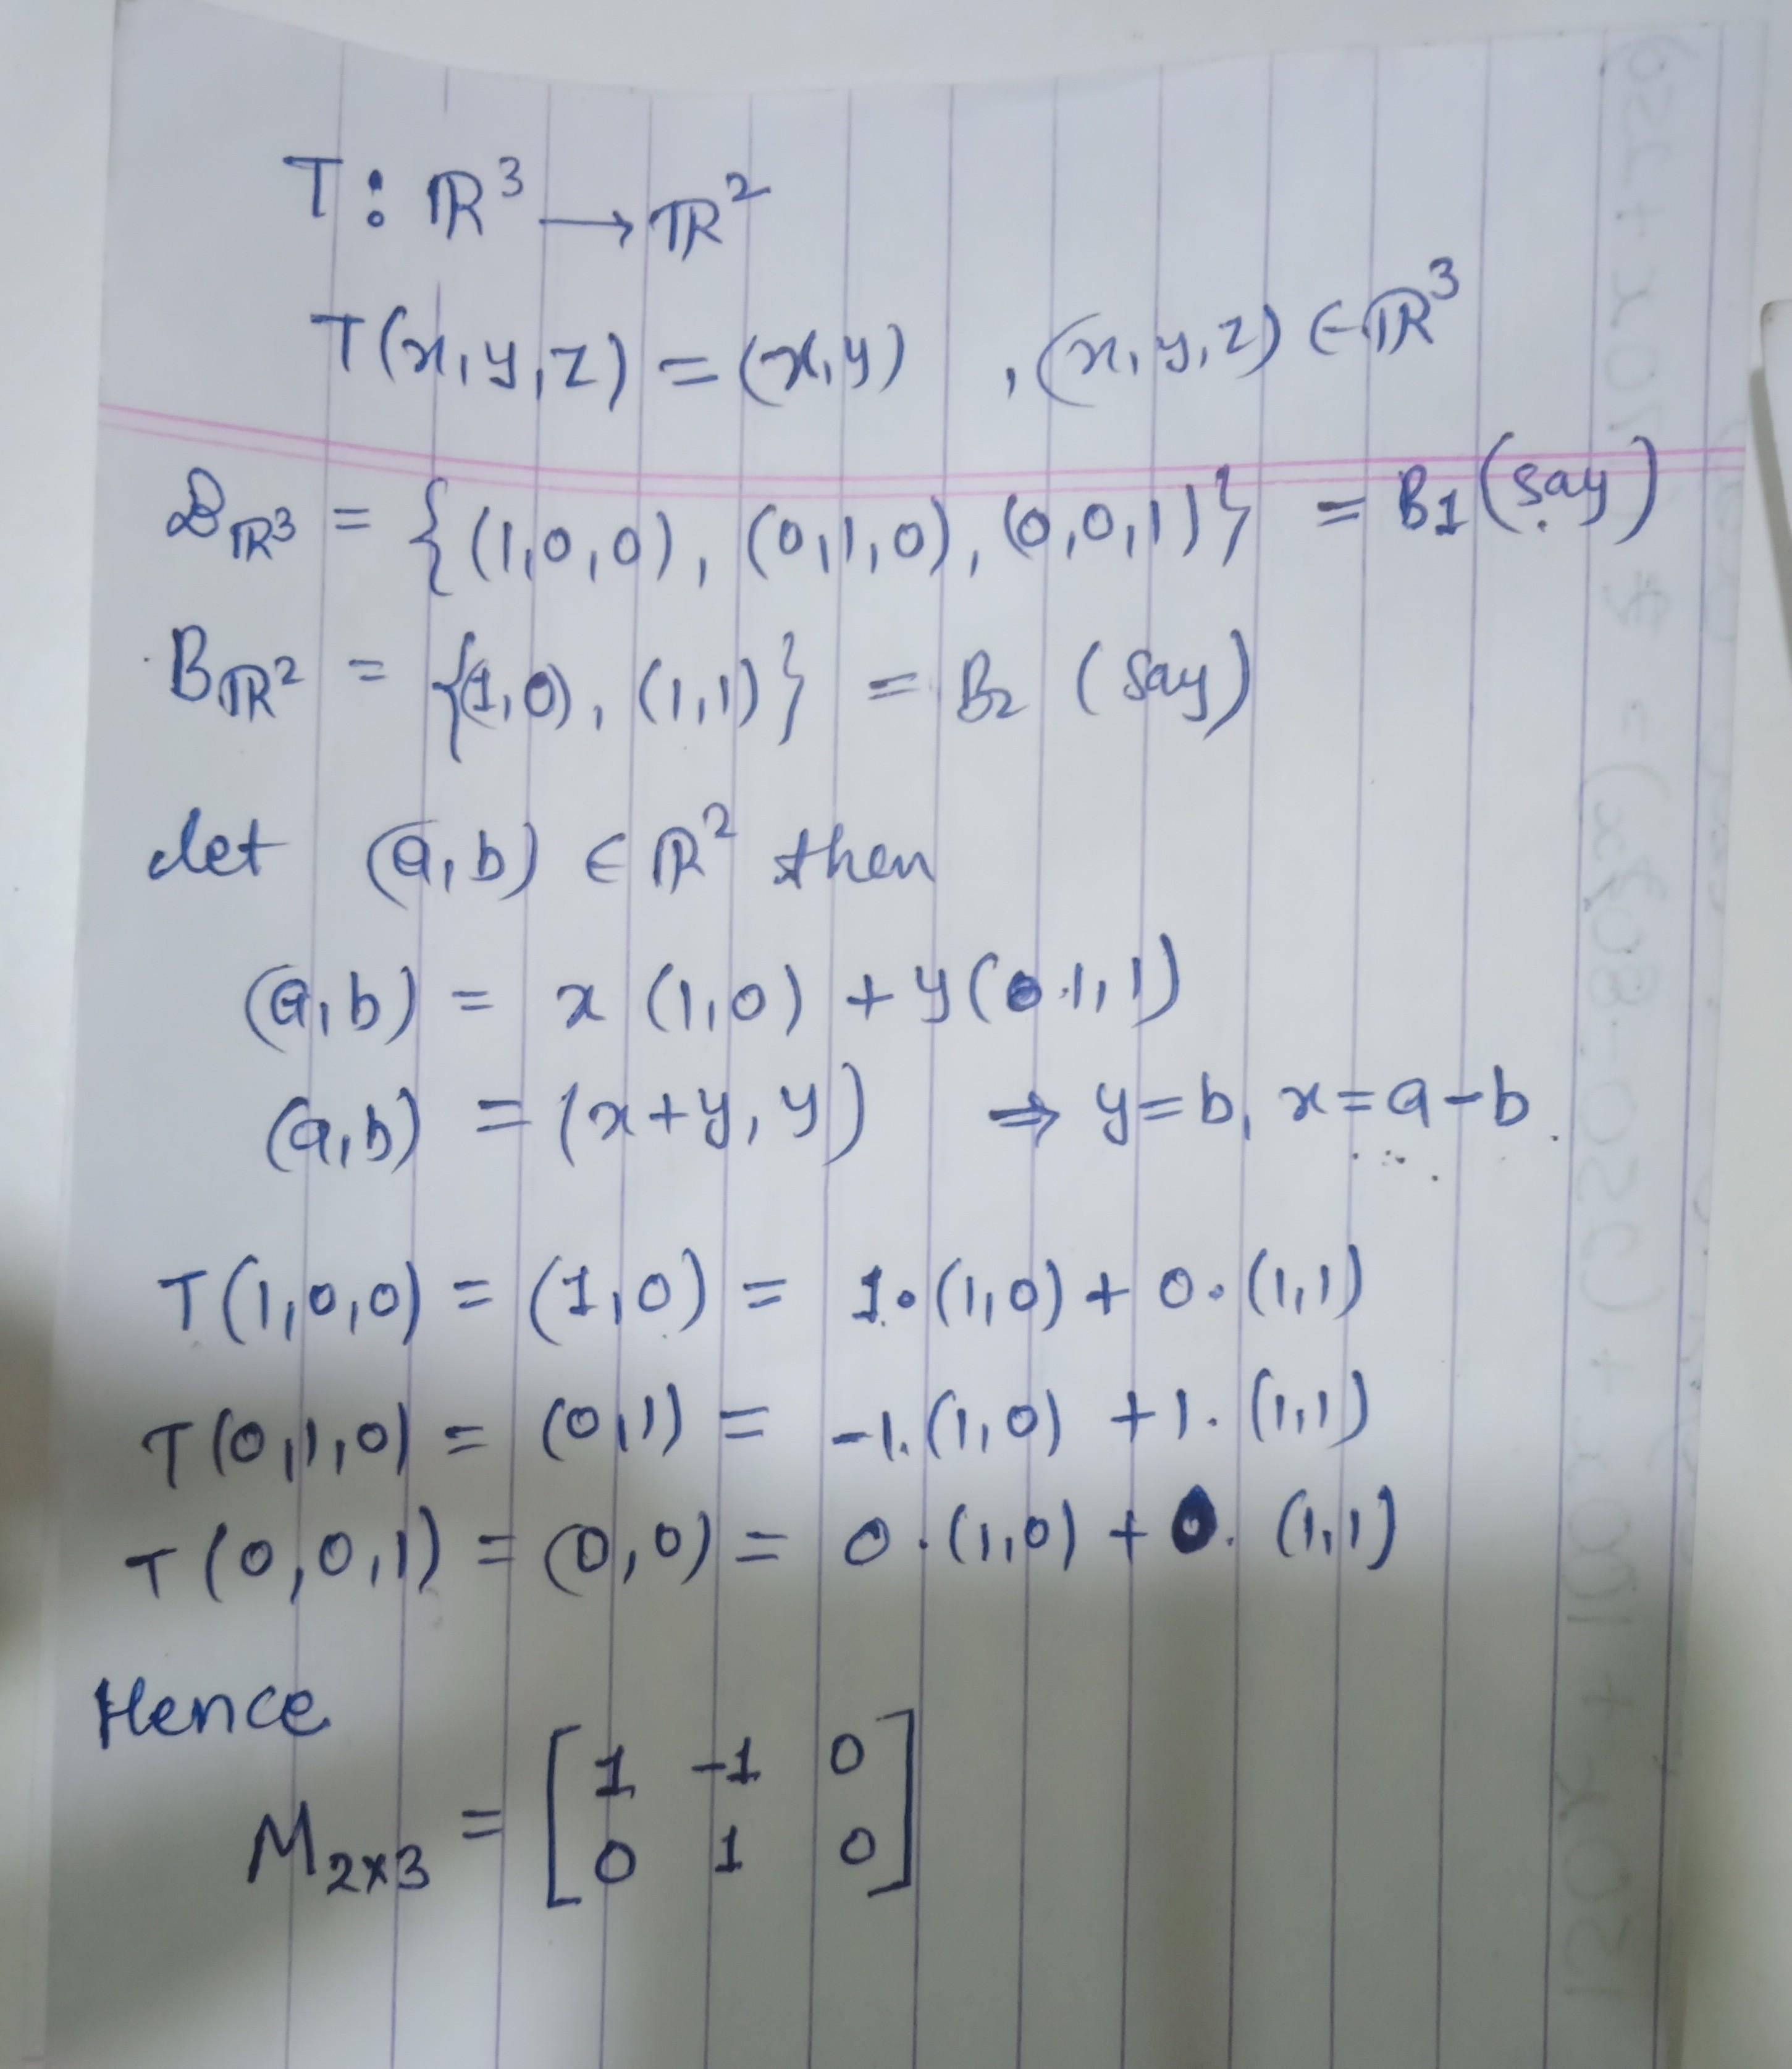 T : ℝ³ → ℝ²
T(x,y,z) = (x,y) , (x,y,z) ∈ ℝ³
B_ℝ³ = {(1,0,0), (0,1,0), (0,0,1)} = B₁ (say)
B_ℝ² = {(1,0), (1,1)} = B₂ (say)
let (a,b) ∈ ℝ² then
(a,b) = x (1,0) + y (1,1)
(a,b) = (x+y, y) ⇒ y=b, x=a-b.
T(1,0,0) = (1,0) = 1.(1,0) + 0.(1,1)
T(0,1,0) = (0,1) = -1.(1,0) + 1.(1,1)
T(0,0,1) = (0,0) = 0.(1,0) + 0.(1,1)
Hence
M₂ₓ₃ = [1 -1 0
0 1 0]